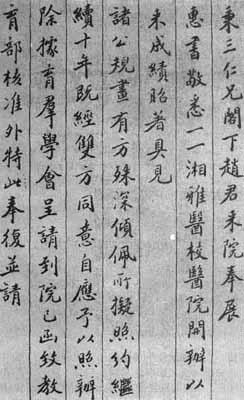 秉三仁兄閣下趙君来院奉展
惠書敬悉一一湘雅醫校醫院開辦以
来成績昭著具見
諸公規畫有方殊深傾佩所擬照約繼
續十年既經雙方同意自應予以照辦
除據育羣學會呈請到院已函致教
育部核准外特此奉復並請